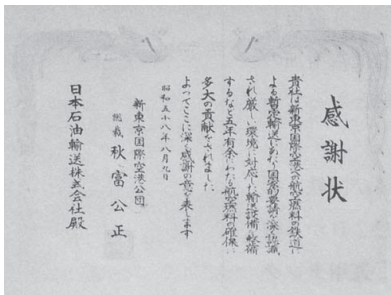 感謝状
貴社は新東京国際空港の航空燃料の鉄道に
よる暫定輸送にあたり国家的要請を深く認識
され厳しい環境に対応した輸送設備を整備
するなど五年有余にわたる航空燃料の確保に
多大の貢献をされました
よってここに深く感謝の意を表します
昭和五十八年八月九日
新東京国際空港公団
総裁 秋富公正
日本石油輸送株式会社殿